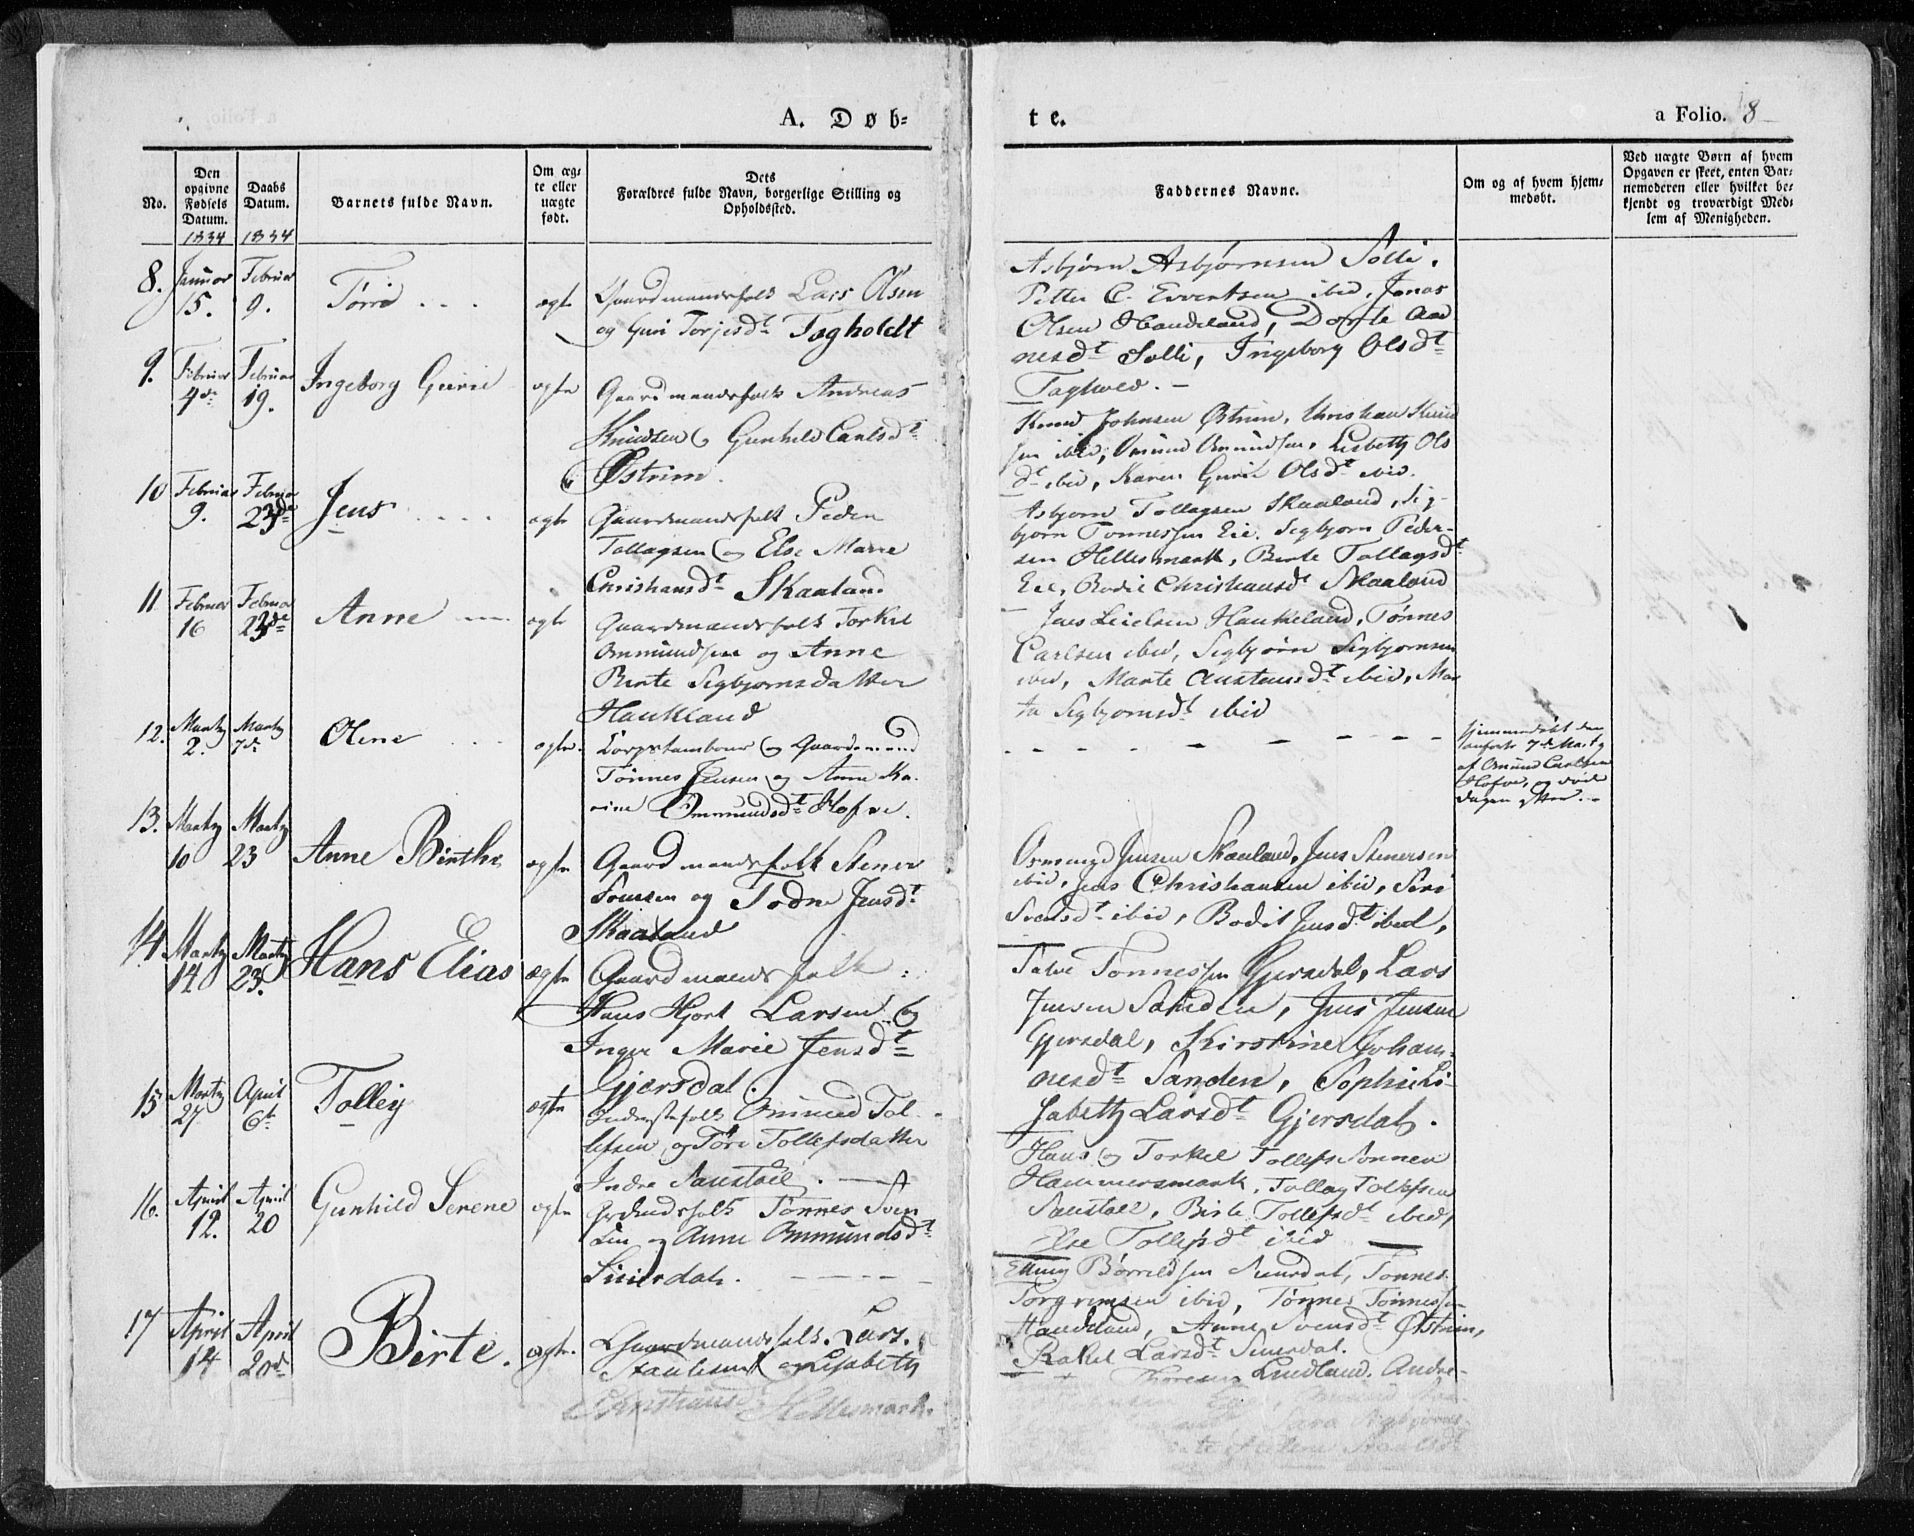 A. Døb-
te.
a Folio. 8
No.
Den opgivne Fødsels Datum.
Daabs Datum.
Barnets fulde Navn.
Om æg-te eller uægte født.
Dets Forældres fulde Navn, borgerlige Stilling og Opholdssted.
Faddernes Navne.
Om og af hvem hjem-medøbt.
Ved uægte Børn af hvem Opgaven er skeet, enten Bar-nemoderen eller hvilket be-kjendt og troværdigt Med-lem af Menigheden.
1834 1834
8. Januar 15. Februar 9. Tørrid ægte
Gaardmandsfolk Lars Olsen
og Guri Torjesdt Tagholdt
Asbjørn Asbjørnsen Solli.
Petter C. Evertsen ibid, Jonas
Olsen Haudeland, Dorte Aa
nesdt Solli, Ingeborg Olsdt
Taghold.
9. Februar 4de Februar 19. Ingeborg Gurie ægte
Gaardmandsfolk Andreas
Knudsen og Gunhild Carlsdt
Østrim.
Knud Johnsen Østrim, Christian Knud
sen ibid, Omund Omundsen, Lisbeth Ols
dt ibid, Karen Gurie Olsdt ibid.
10 Februar 9. Februar 23de Jens ægte
Gaardmandsfolk Peder
Tollagsen og Else Marie
Christiansdt Skaaland
Asbjørn Tollagsen Skaaland, Sig-
bjørn Tønnessen Eie, Segbjørn Peder-
sen Hellesmark, Birte Tollagsdt
Eie, Bodil Christiansdt Skaaland
11 Februar 16 Februar 23de Anne ægte
Gaardmandsfolk Torkel
Ommundsen og Anne
Birte Segbjørnsdatter
Haukland
Jens Haukeland, Tønnes
Carlsen ibid, Segbjørn Segbjørnsen
ibid, Marte Austensdt ibid, Mar
ta Segbjørnsdt ibid
12. Marty 2. Marty 7de Olene ægte.
Corpstambour og Gaardmand
Tønnes Jensen og Anne Ka-
rine Ommundsdt Hofve.
Hjemmedøbt den
anførte 7de Marty
af Omund Carlsen
Hofve, og døde
dagen efter.
13. Marty 10 Marty 23 Anne Birthe ægte
Gaardmandsfolk Stener
og Todne Jensdt
Skaaland
Ommund Jensen Skaaland, Jens Stenersen
ibid, Jens Christiansen ibid, Siri
Svensdt ibid, Bodil Jensdt ibid,
14. Marty 14 Marty 23. Hans Elias ægte
Gaardmandsfolk
Hans Hjort Larsen og
Inger Marie Jensdt
Gjersdal.
Salve Tønnessen Gjersdal, Lars
Jensen Sanden, Jens Jensen
Gjersdal, Kirstine Johan-
nesdt Sanden, Sophie Li-
sabeth Larsdt Gjersdal.
15 Marty 27 April 6te Tolley ægte
Inderstefolk Omund Tol-
lefsen og Tore Tollefsdatter
Indre Saustøl.
Hans og Torkel Tollefs Sønner
Hammersmark, Tollag Tollefsen
Saustøl, Birte Tollefsdt ibid,
Else Tollefsdt ibid
16. April 12. April 20 Gunhild Serene ægte
Tønnes Sven
sen og Anne Ommundsdt
Sirirsdal.
Elling Sunsdal, Tønnes
Torgrimsen ibid, Tønnes Tønnessen
Haudeland, Anne Svensdt Østrim,
Rakel Larsdt Sunsdal.
17 April 14 April 20de Birte. ægte.
Gaardmandsfolk Lars
Staalesen og Lisabeth
Christiansdt Hellesmark.
Toresen Lindland. Andre-
Sara Segbjørns-
Helene Staalesdt